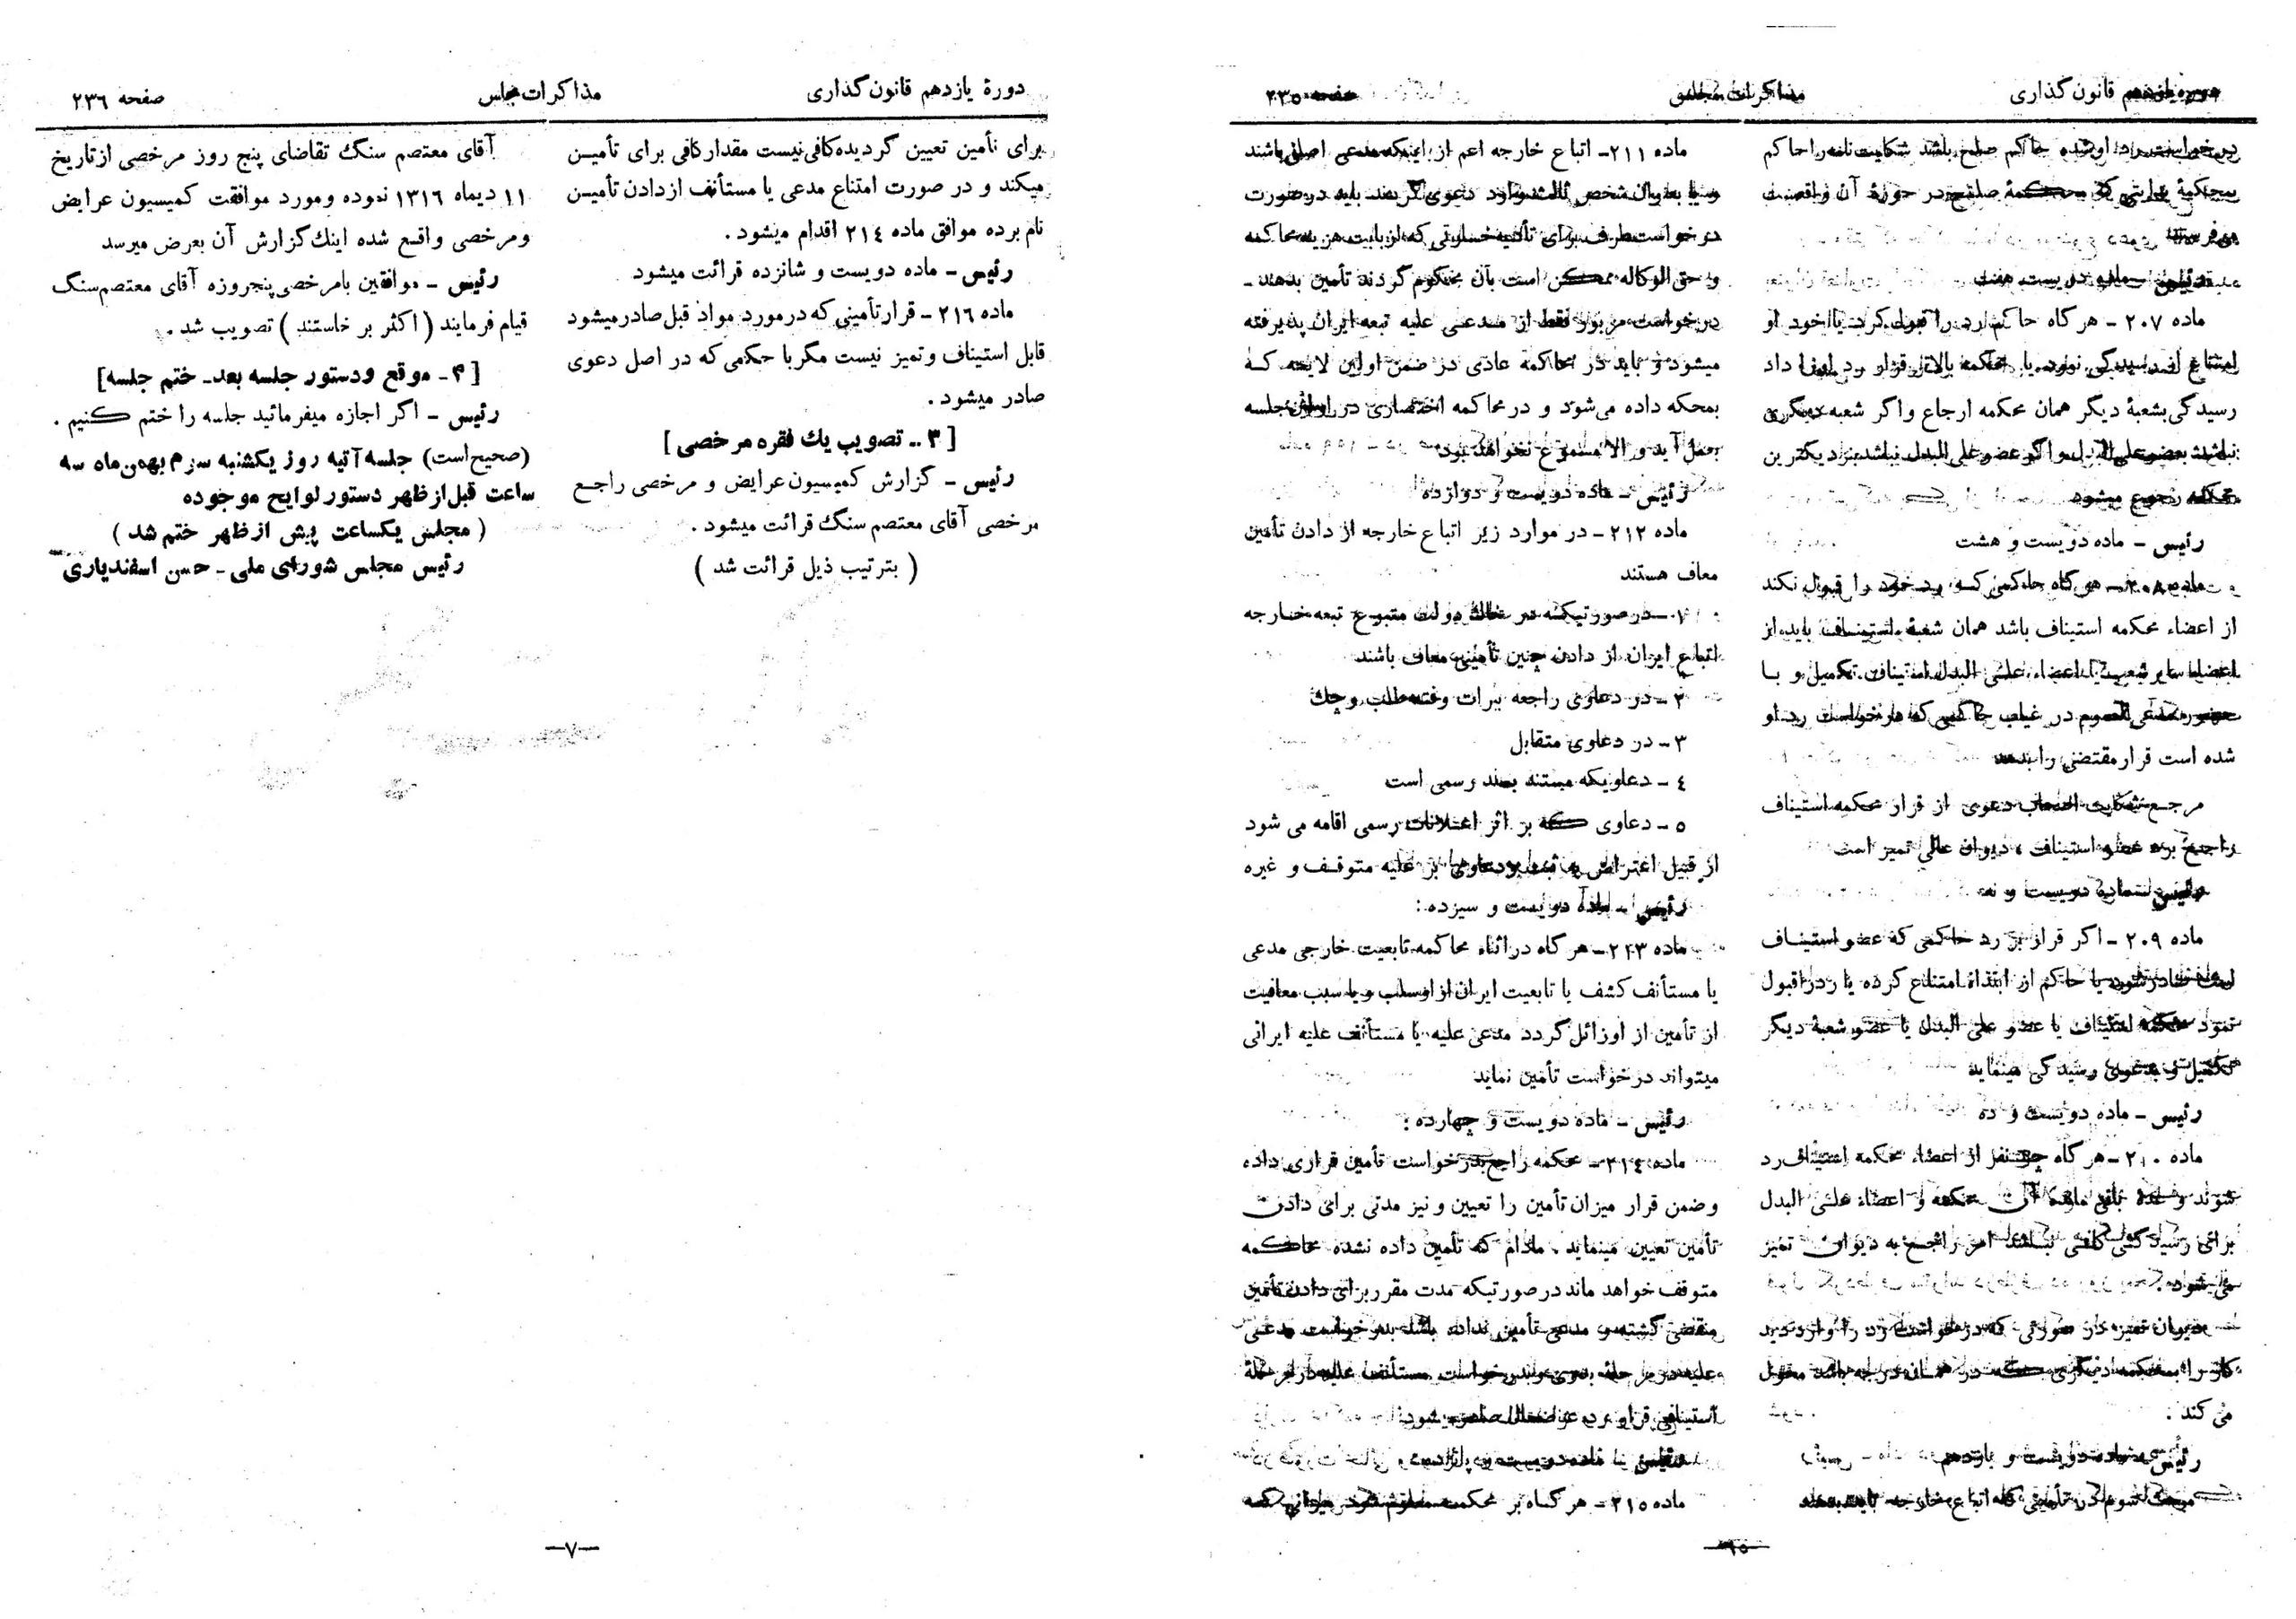 دورهٔ یازدهم قانون‌گذاری
مذاکرات مجلس
صفحه ۲۳۵
درخواست رد او شده حاکم صلح باشد شکایت‌نامه را حاکم
بمحکمهٔ بدایتی که محکمهٔ صلح در حوزهٔ آن واقعست
می‌فرستد
رئیس - ماده دویست هفت
ماده ۲۰۷ - هر گاه حاکم رد را قبول کرد یا خود او
امتناع از رسیدگی نمود یا محکمه بالاتر قرار رد او را داد
رسیدگی بشعبهٔ دیگر همان محکمه ارجاع و اگر شعبه دیگری
نباشد بعضو علی البدل و اگر عضو علی البدل نباشد بنزدیکترین
محکمه رجوع میشود
رئیس - ماده دویست و هشت
ماده ۲۰۸ - هر گاه حاکمی که رد خود را قبول نکند
از اعضاء محکمه استیناف باشد همان شعبهٔ استیناف باید از
اعضاء سایر شعب یا اعضاء علی البدل استیناف تکمیل و با
حضور مدعی العموم در غیاب حاکمی که درخواست رد او
شده است قرار مقتضی را بدهد
مرجع شکایت اصحاب دعوی از قرار محکمه استیناف
راجع برد عضو استیناف ، دیوان عالی تمیز است
رئیس - ماده دویست و نه
ماده ۲۰۹ - اگر قرار بر رد حاکمی که عضو استیناف
است صادر شود یا حاکم از ابتداء امتناع کرده یا رد را قبول
نمود محکمه استیناف با عضو علی البدل یا عضو شعبهٔ دیگر
تکمیل و بدعوی رسیدگی مینماید
رئیس - ماده دویست و ده
ماده ۲۱۰ - هر گاه چند نفر از اعضاء محکمه استیناف رد
شوند و عدهٔ باقی ماندهٔ آن محکمه و اعضاء علی البدل
برای رسیدگی کافی نباشد امر راجع به دیوان تمیز
می‌شود.
دیوان تمیز در صورتی که درخواست رد را وارد دید
کار را بمحکمه دیگری که در همان درجه باشد محول
می کند .
رئیس - ماده دویست و یازدهم
مبحث سوم در تأمینی که اتباع خارجه باید بدهند
ماده ۲۱۱ - اتباع خارجه اعم از اینکه مدعی اصلی باشند
و یا بعنوان شخص ثالث وارد دعوی گردند باید در صورت
درخواست طرف برای تأدیه خسارتی که از بابت هزینه محاکمه
و حق الوکاله ممکن است بآن محکوم گردند تأمین بدهند -
درخواست مزبور فقط از مدعی علیه تبعه ایران پذیرفته
میشود و باید در محاکمهٔ عادی در ضمن اولین لایحه که
بمحکه داده می‌شود و در محاکمه اختصاری در اولین جلسه
بعمل آید و الا مسموع نخواهد بود.
رئیس - ماده دویست و دوازده
ماده ۲۱۲ - در موارد زیر اتباع خارجه از دادن تأمین
معاف هستند
۱ - در صورتیکه در خاک دولت متبوع تبعه خارجه
اتباع ایران از دادن چنین تأمینی معاف باشند
۲ - در دعاوی راجعه ببرات وفته‌طلب و چک
۳ - در دعاوی متقابل
٤ - دعاویکه مستند بسند رسمی است
٥ - دعاوی که بر اثر اعلانات رسمی اقامه می شود
از قبیل اعتراض به ثبت و دعاوی بر علیه متوقف و غیره
رئیس - ماده دویست و سیزده :
ماده ۲۱۳ - هر گاه در اثناء محاکمه تابعیت خارجی مدعی
یا مستأنف کشف یا تابعیت ایران از او سلب و یا سبب معافیت
از تأمین از او زائل گردد مدعی علیه یا مستأنف علیه ایرانی
میتواند درخواست تأمین نماید
رئیس - ماده دویست و چهارده :
ماده ۲۱٤ - محکمه راجع بدرخواست تأمین قراری داده
و ضمن قرار میزان تأمین را تعیین و نیز مدتی برای دادن
تأمین تعیین مینماید . مادام که تأمین داده نشده محاکمه
متوقف خواهد ماند در صورتیکه مدت مقرر برای دادن تأمین
منقضی گشته و مدعی تأمین نداده باشد بدرخواست مدعی
علیه در مرحلهٔ بدوی و بدرخواست مستأنف علیه در مرحلهٔ
استینافی قرار رد عرضحال صادر میشود
رئیس - ماده دویست و پانزده
ماده ۲۱٥ - هر گاه بر محکمه معلوم شود میزانی که
—۶—
دورهٔ یازدهم قانون‌گذاری
مذاکرات مجلس
صفحه ۲۳٦
برای تأمین تعیین گردیده کافی نیست مقدار کافی برای تأمیـن
میکند و در صورت امتناع مدعی یا مستأنف از دادن تأمیـن
نام برده موافق ماده ۲۱٤ اقدام میشود .
رئیس - ماده دویست و شانزده قرائت میشود
ماده ۲۱٦ - قرار تأمینی که در مورد مواد قبل صادر میشود
قابل استیناف و تمیز نیست مگر با حکمی که در اصل دعوی
صادر میشود .
[ ۳ - تصویب یك فقره مرخصی ]
رئیس - گزارش کمیسیون عرایض و مرخصی راجع
مرخصی آقای معتصم سنگ قرائت میشود .
( بترتیب ذیل قرائت شد )
آقای معتصم سنگ تقاضای پنج روز مرخصی از تاریخ
۱۱ دیماه ۱۳۱٦ نموده و مورد موافقت کمیسیون عرایض
و مرخصی واقع شده اینك گزارش آن بعرض میرسد
رئیس - موافقین بامرخصی پنجروزه آقای معتصم سنگ
قیام فرمایند ( اکثر بر خاستند ) تصویب شد .
[ ۴ - موقع و دستور جلسه بعد - ختم جلسه]
رئیس - اگر اجازه میفرمائید جلسه را ختم کنیم .
(صحیح است) جلسه آتیه روز یکشنبه سوم بهمن ماه سه
ساعت قبل از ظهر دستور لوایح موجوده
( مجلس یکساعت پیش از ظهر ختم شد )
رئیس مجلس شورای ملی - حسن اسفندیاری
—۷—